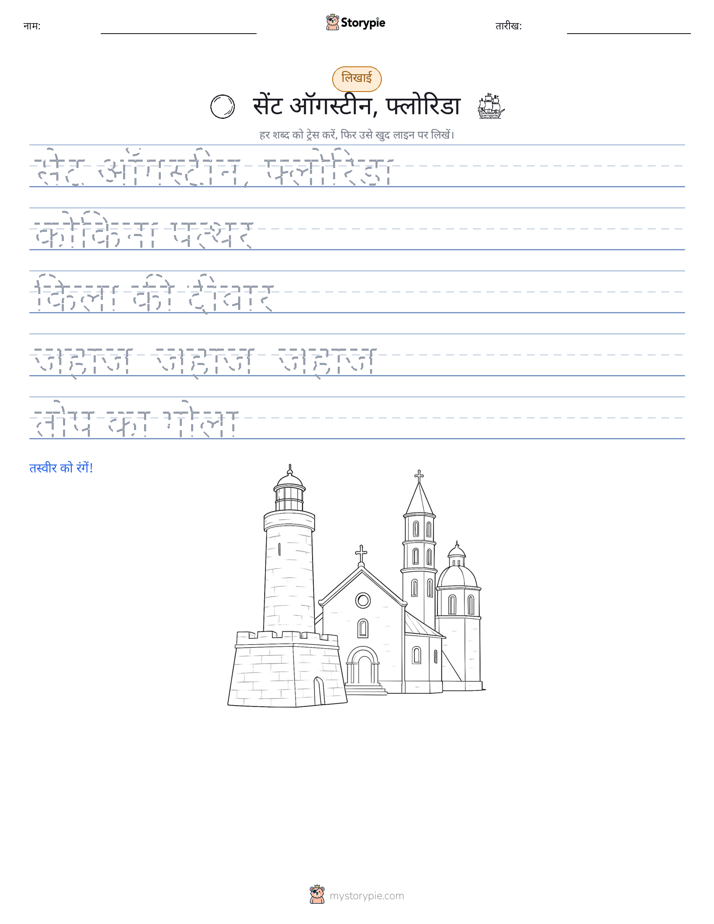 नाम:
Storypie
तारीख:
लिखाई
सेंट ऑगस्टीन, फ्लोरिडा
हर शब्द को ट्रेस करें, फिर उसे खुद लाइन पर लिखें।
सेंट ऑगस्टीन, फ्लोरिडा
कोकिना पत्थर
किला की दीवार
जहाज जहाज जहाज
तोप का गोला
तस्वीर को रंगें!
mystorypie.com